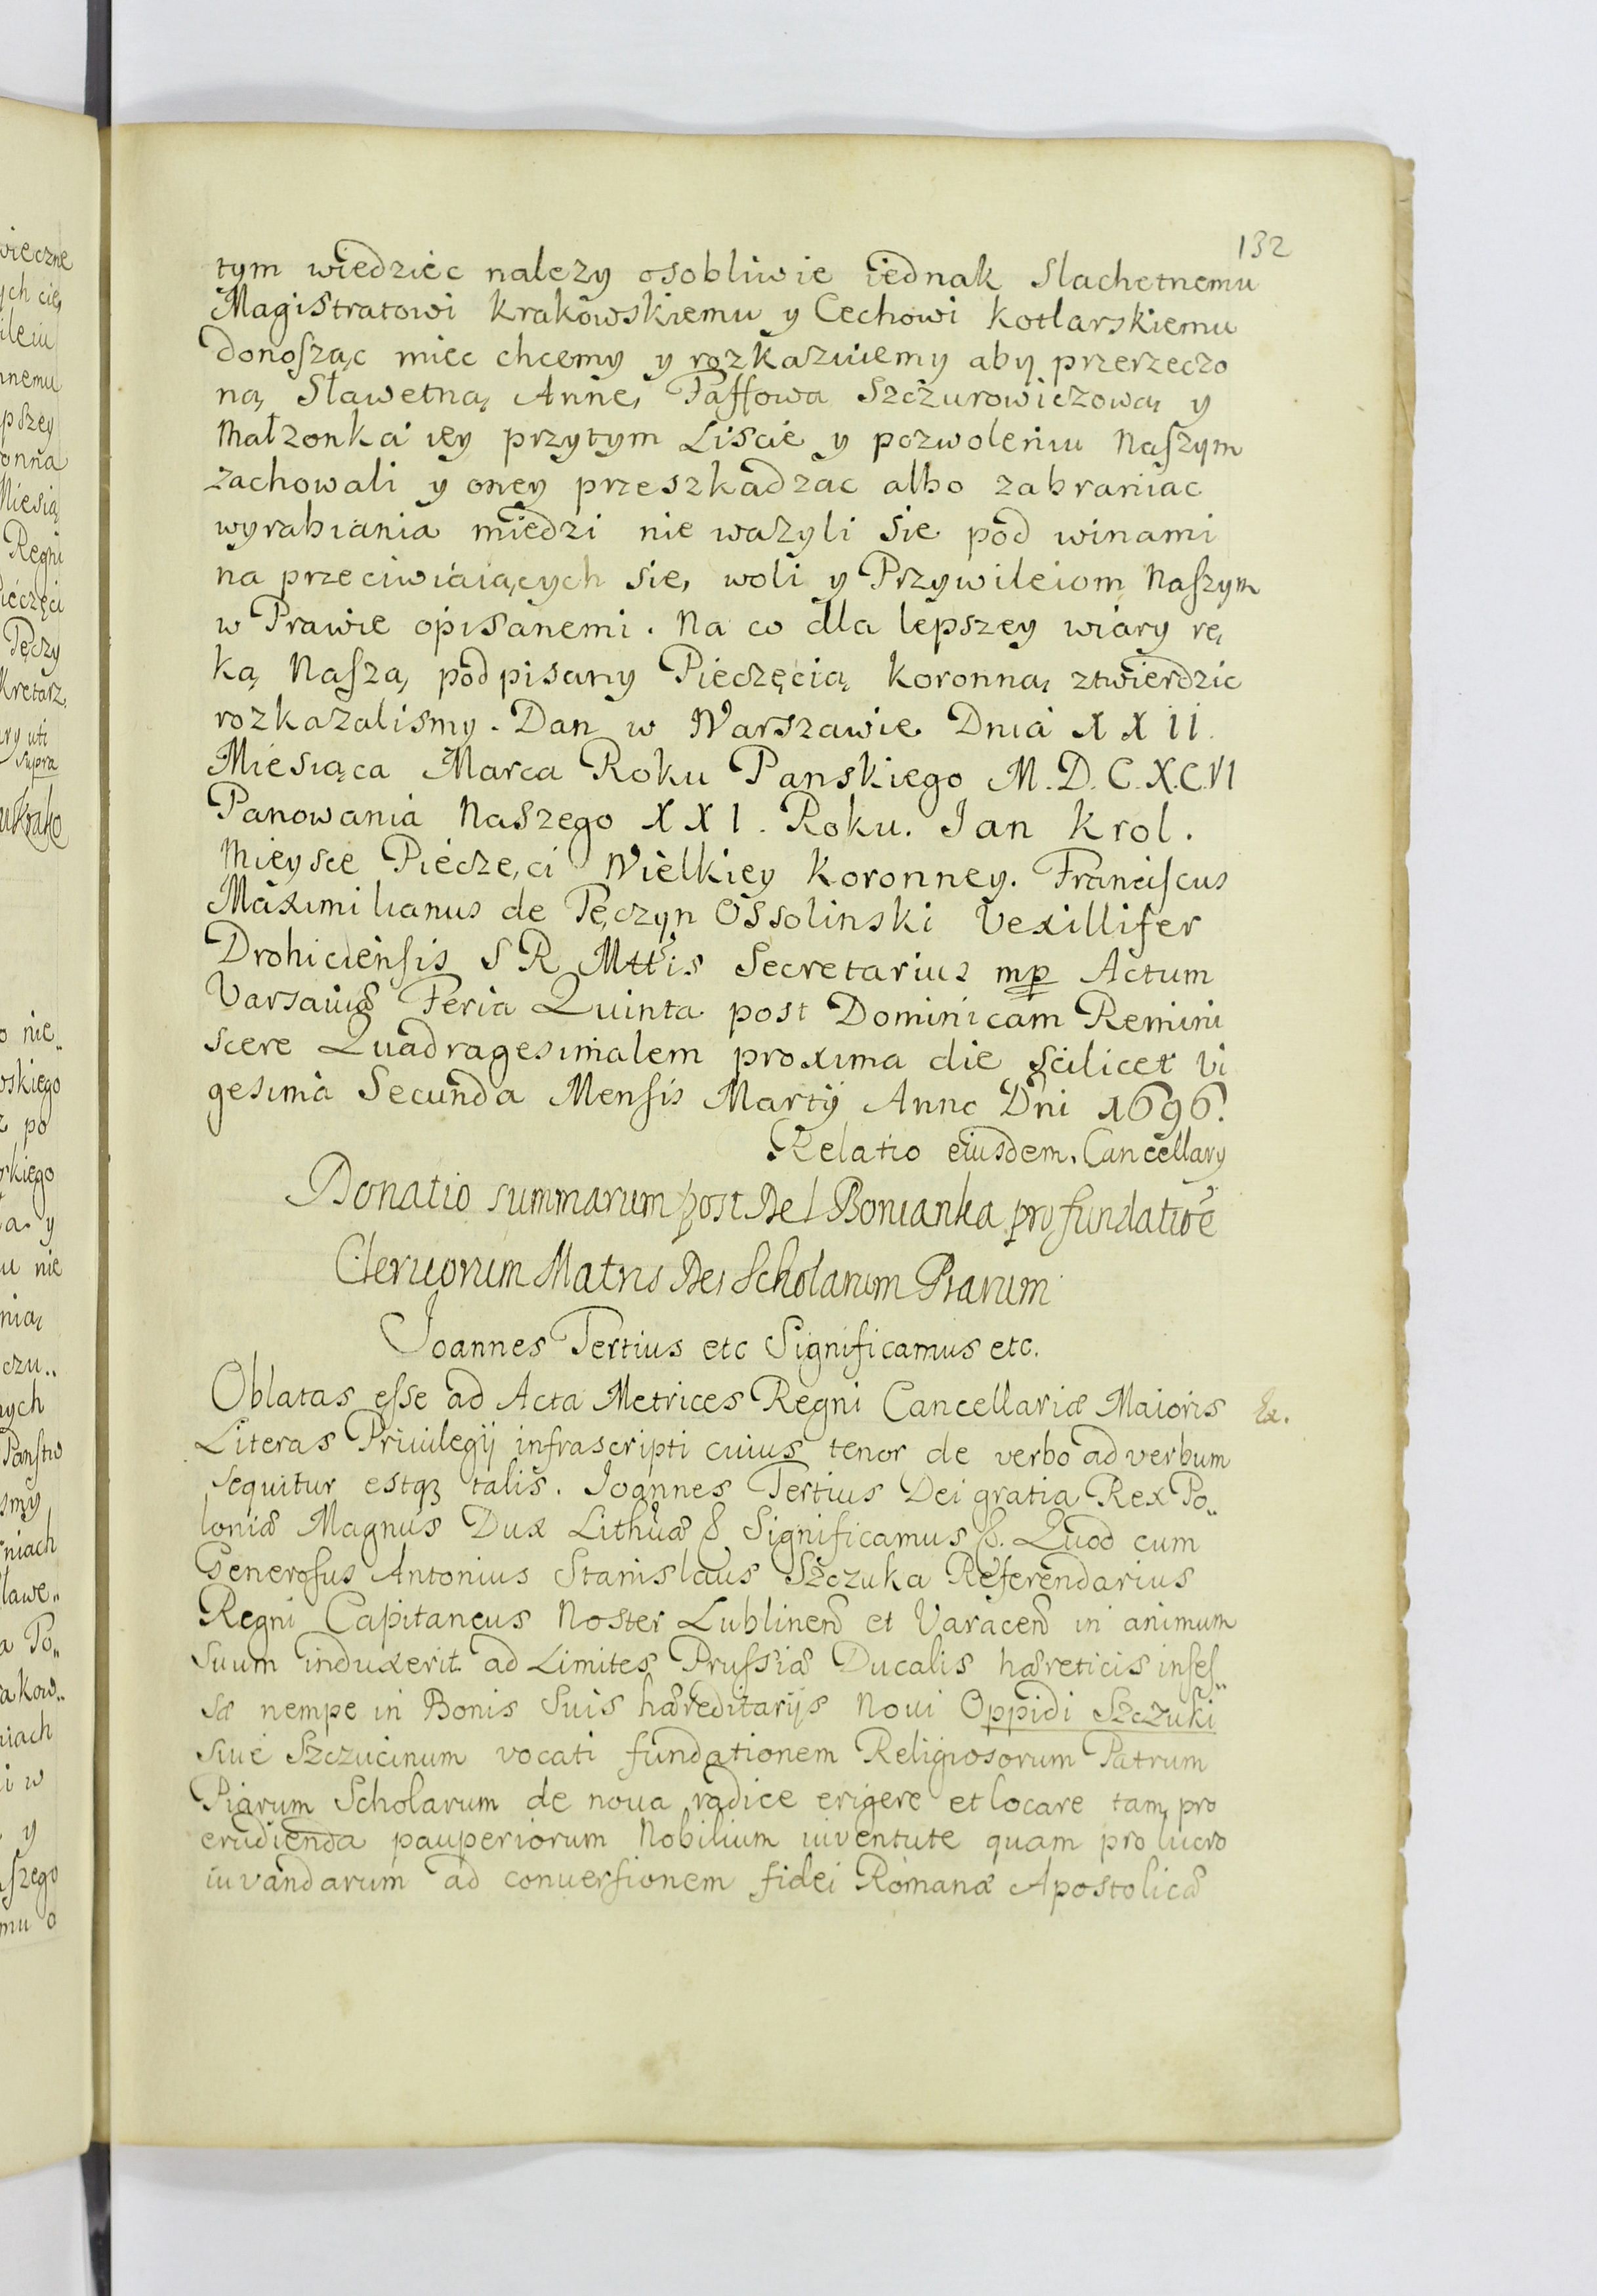 132
tym wiedziec nalezy osobliwie iednak Slachetnemu
Magistratowi Krakowskiemu y Cechowi Kotlarskiemu
donosząc miec chcemy y rozkazuiemy aby przerzeczo
ną Sławetną Annę Paffowa Szczurowiczową y
Małzonka iey przytym Liscie y pozwoleniu Naszym
zachowali y oney przeszkadzac albo zabraniac
wyrabiania miedzi nie wazyli sie pod winami
na przeciwiaiących się woli y Przywileiom Naszym
w Prawie opisanemi. Na co dla lepszey wiary rę
ką Naszą podpisany Pieczęcią Koronną ztwierdzic
rozkazalismy. Dan w Warszawie Dnia XXII.
Miesiąca Marca Roku Panskiego M.D.C.X.C.VI
Panowania Naszego XXI. Roku. Jan Krol.
Mieysce Pieczęci Wielkiey Koronney. Franciscus
Maximilianus de Tęczyn Ossolinski Vexillifer
Drohiciensis S R Mttis Secretarius mp Actum
Varsaviæ Feria Quinta post Dominicam Remini
scere Quadragesimalem proxima die scilicet Vi
gesima Secunda Mensis Martij Anno Dni 1696.
Relatio eiusdem Cancellary
Donatio summarum post Bonianka pro fundatioe
Clericorum Matris Dei Scholarum Piarum
Joannes Tertius etc Significamus etc.
Oblatas esse ad Acta Metrices Regni Cancellariæ Maioris
Ex.
Literas Priuilegij infrascripti cuius tenor de verbo ad verbum
sequitur estqꝫ talis. Joannes Tertius Dei gratia Rex Po..
loniæ Magnus Dux Lithuæ & Significamus &. Quod cum
Generosus Antonius Stanislaus Szczuka Referendarius
Regni Capitaneus Noster Lublinen et Varacen in animum
suum induxerit ad Limites Prussiæ Ducalis hæreticis infes..
sæ nempe in Bonis Suis hæreditarijs Noui Oppidi Szczuki
siue Szczucinum vocati fundationem Religiosorum Patrum
Piarum Scholarum de noua radice erigere et locare tam pro
erudienda pauperiorum Nobilium iuventute quam pro lucro
iuvandarum ad conuersionem fidei Romanæ Apostolicæ